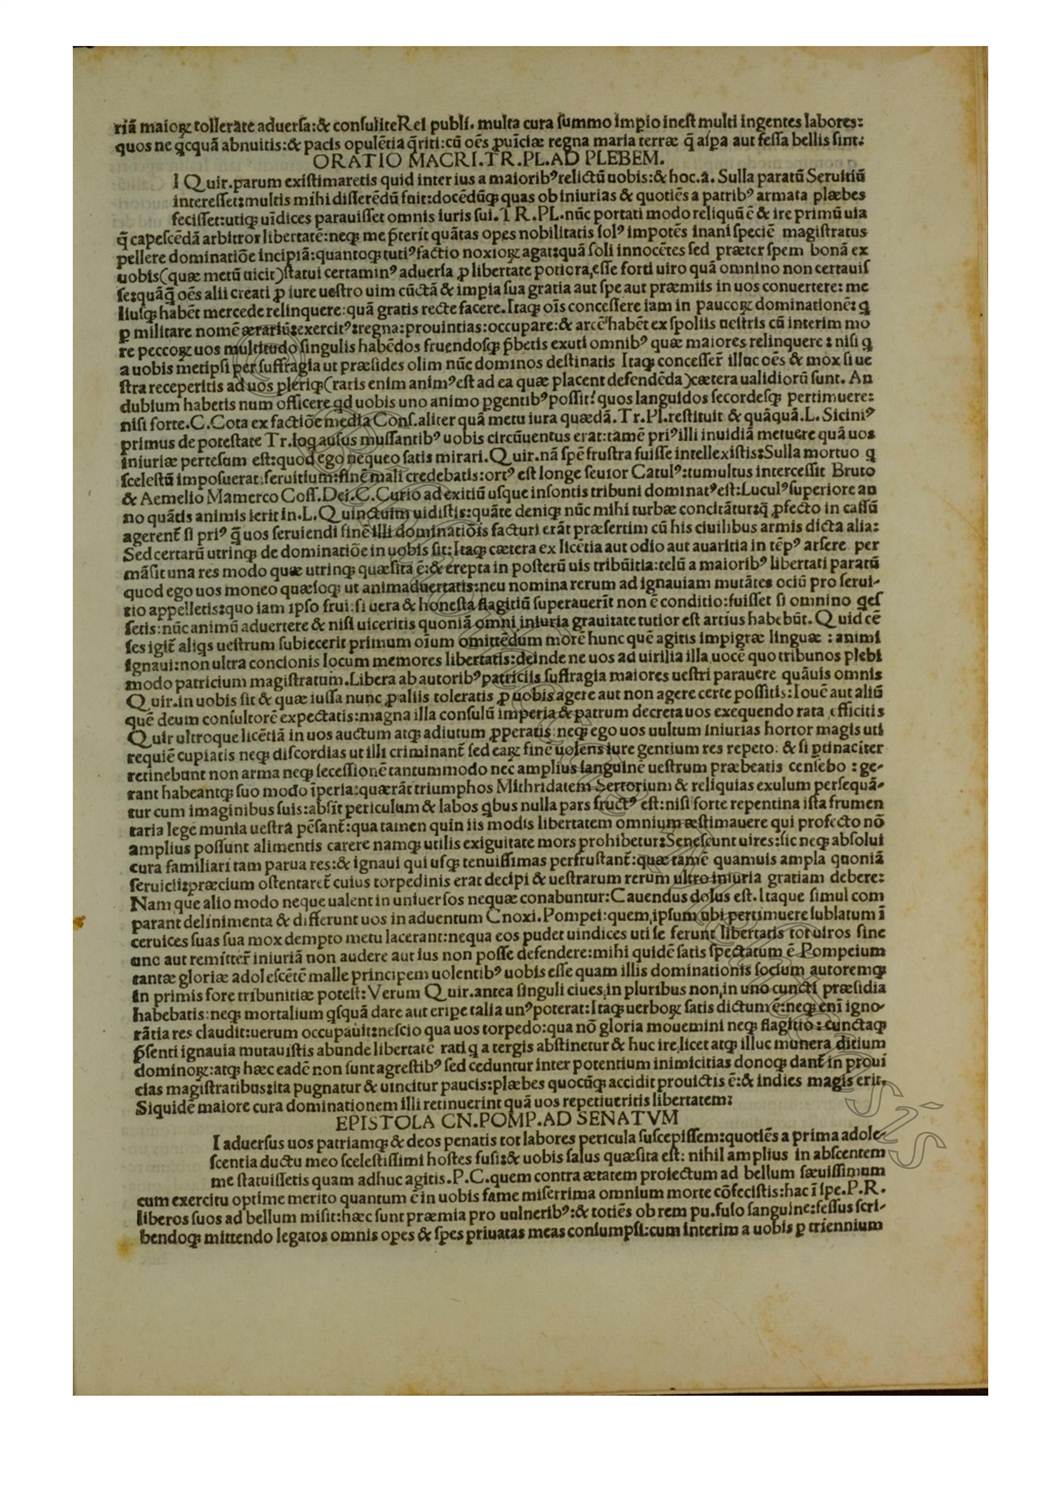 riā maioꝝ tollerate aduersa:& consuliteRei publi. multa cura summo impio inest multi ingentes labores:
quos ne q̄cquā abnuitis:& pacis opulētia q̄riti:cū oēs ꝓuīciæ regna maria terræ q̄ aspa aut fessa bellis sint:
ORATIO MACRI.TR.PL.AD PLEBEM.
I Quir.parum existimaretis quid inter ius a maioribꝰ relictū uobis:& hoc.a. Sulla paratū Seruitiū
interesset:multis mihi differēdū fuit:docēdūqꝫ quas ob iniurias & quotiēs a patribꝰ armata plæbes
fecisset:utiqꝫ uīdices parauisset omnis iuris sui.TR.PL.nūc portati modo reliquū ē & ire primū uia
q̄ capescēdā arbitror libertatē:neqꝫ me p̄terit quātas opes nobilitatis solꝰ impotēs inani speciē magistratus
pellere dominatiōe incipiā:quantoqꝫ tutiꝰ factio noxioꝝ agat:quā soli innocētes sed præter spem bonā ex
uobis(quæ metū uicit)statui certaminꝰ aduersa ꝓ libertate potiora,esse forti uiro quā omnino non certauis
se:quāq̄ oēs alii creati ꝓ iure uestro uim cūctā & impia sua gratia aut spe aut præmiis in uos conuertere: me
liusqꝫ habēt mercede relinquere:quā gratis recte facere.Itaqꝫ oīs concessere iam in paucoꝝ dominationē: q
ꝑ militare nomē ærariū:exercitꝰ:regna:prouintias:occupare:& arcē habēt ex spoliis uestris cū interim mo
re peccoꝝ uos multitudo singulis habēdos fruendosqꝫ p̄betis exuti omnibꝰ quæ maiores relinquere: nisi q
a uobis metipsi per suffragia ut præsides olim nūc dominos destinatis Itaqꝫ concesser̄ illuc oēs & mox si ue
stra receperitis ad uos pleriqꝫ(raris enim animꝰ est ad ea quæ placent defendēda)cætera ualidiorū sunt. An
dubium habetis num officere qd uobis uno animo pgentibꝰ possit? quos languidos secordesqꝫ pertimuere:
nisi forte.C.Cota ex factiōe media Cons.aliter quā metu iura quædā.Tr.Pl.restituit & quāquā.L.Siciniꝰ
primus de potestate Tr.loq ausus mussantibꝰ uobis circūuentus erat:tamē priꝰ illi inuidiā metuere quā uos
iniuriæ pertesum est:quod ego nequeo satis mirari.Quir.nā spē frustra fuisse intellexistis:Sulla mortuo q
scelestū imposuerat:seruitium:finē mali credebatis:ortꝰ est longe seuior Catulꝰ:tumultus intercessit Bruto
& Aemelio Mamerco Coss.Dei.C.Curio ad exitiū usque insontis tribuni dominatꝰ est:Luculꝰ superiore an
no quātis animis ierit in.L.Quinctium uidistis:quāte deniqꝫ nūc mihi turbæ concitātur:q ꝓfecto in cassū
agerent̄ si priꝰ q̄ uos seruiendi finē illi dominatiōis facturi erāt præsertim cū his ciuilibus armis dicta alia:
Sed certatū utrinqꝫ de dominatiōe in uobis sit:Itaqꝫ cætera ex licētia aut odio aut auaritia in tēpꝰ arsere per
māsit una res modo quæ utrinqꝫ quæsita ē:& erepta in posterū uis tribūitia:telū a maioribꝰ libertati paratū
quod ego uos moneo quæsoqꝫ ut animaduertatis:neu nomina rerum ad ignauiam mutātes ociū pro serui-
tio appelletis:quo iam ipso frui:si uera & honesta flagitiū superauerīt non ē conditio:fuisset si omnino qes
setis:nūc animū aduertere & nisi uiceritis quoniā omni iniuria grauitate tutior est artius habebūt. Quid cē
ses igit̄ aliqs uestrum subiecerit primum oīum omittēdum morē hunc quē agitis impigræ linguæ : animi
ignaui:non ultra concionis locum memores libertatis:deinde ne uos ad uirilia illa uocē quo tribunos plebi
modo patricium magistratum.Libera ab autoribꝰ patriciis suffragia maiores uestri parauere quāuis omnis
Quir.in uobis sit & quæ iussa nunc ꝓ aliis toleratis ꝓ uobis agere aut non agere certe possitis:Iouē aut aliū
quē deum consultorē expectatis:magna illa consulū imperia & patrum decreta uos exequendo rata efficitis
Quir ultroque licētiā in uos auctum atqꝫ adiutum ꝓperatis: neqꝫ ego uos uultum iniurias hortor magis uti
requiē cupiatis neqꝫ discordias ut illi criminant̄ sed eaꝝ finē uolens iure gentium res repeto: & si ptinaciter
retinebunt non arma neqꝫ secessionē tantummodo nec amplius sanguinē uestrum præbeatis censebo : ge-
rant habeantqꝫ suo modo īperia:quærāt triumphos Mithridatem Sertorium & reliquias exulum persequā-
tur cum imaginibus suis:absīt periculum & labos qbus nulla pars fructꝰ est:nisi forte repentina ista frumen
taria lege munia uestra pēsant̄:qua tamen quin iis modis libertatem omnium æstimauere qui profecto nō
amplius possunt alimentis carere namqꝫ utilis exiguitate mors prohibetur:Senescunt uires:sic neqꝫ absolui
cura familiari tam parua res:& ignaui qui usqꝫ tenuissimas perfrustant̄:quæ tamē quamuis ampla quoniā
seruicii:præcium ostentaret̄ cuius torpedinis erat decipi & uestrarum rerum ultro iniuria gratiam debere:
Nam que alio modo neque ualent in uniuersos nequæ conabuntur:Cauendus dolus est.Itaque simul com
parant delinimenta & differunt uos in aduentum Cnoxi.Pompei:quem,ipsum ubi pertimuere sublatum ī
ceruices suas sua mox dempto metu lacerant:nequa eos pudet uindices uti se ferunt libertatis tot uiros sine
uno aut remitter̄ iniuriā non audere aut ius non posse defendere:mihi quidē satis spectatum ē Pompeium
tantæ gloriæ adolescētē malle principem uolentibꝰ uobis esse quam illis dominationis socium autoremqꝫ
in primis fore tribunitiæ potest:Verum Quir.antea singuli ciues,in pluribus non,in uno cuncti præsidia
habebatis:neqꝫ mortalium qsquā dare aut eripe talia unꝰ poterat:Itaqꝫ uerboꝝ satis dictum ē:neqꝫ enī igno-
rātia res claudit:uerum occupauit:nescio qua uos torpedo:qua nō gloria mouemini neqꝫ flagitio:cunctaqꝫ
p̄senti ignauia mutauistis abunde libertatē rati q a tergis abstinetur & huc ire,licet atqꝫ illuc munera ditium
dominoꝝ:atqꝫ hæc eadē non sunt agrestibꝰ sed ceduntur inter potentium inimicitias donoqꝫ dant̄ in proui
cias magistratibus:ita pugnatur & uincitur paucis:plæbes quocūqꝫ accidit prouictis ē:& indies magis erit.
Siquidē maiore cura dominationem illi retinuerint quā uos repetiueritis libertatem:
EPISTOLA CN.POMP.AD SENATVM
I aduersus uos patriamqꝫ & deos penatis tot labores pericula suscepissem:quotiēs a prima adole-
scentia ductu meo scelestissimi hostes fusi:& uobis salus quæsita est: nihil amplius in abscentem
me statuissetis quam adhuc agitis.P.C.quem contra ætatem proiectum ad bellum sæuissimum
cum exercitu optime merito quantum ē in uobis fame miserrima omnium morte cōfecistis:hac ī spe.P.R.
liberos suos ad bellum misit:hæc sunt præmia pro uulneribꝰ:& totiēs ob rem pu.fuso sanguine:fessus scri-
bendoqꝫ mittendo legatos omnis opes & spes priuatas meas consumpsi:cum interim a uobis ꝑ triennium
SZS